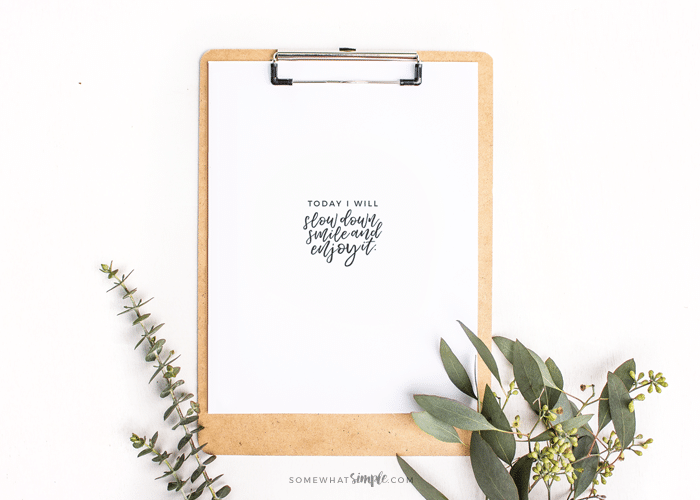 TODAY I WILL
slow down,
smile and
enjoy it.
SOMEWHAT simple.COM